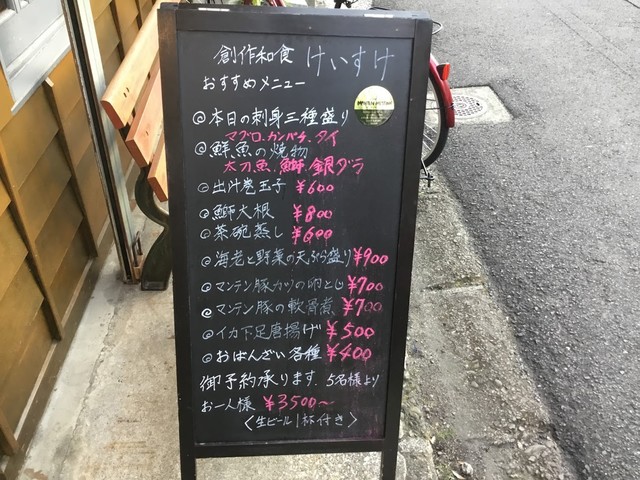 創作和食 けいすけ
おすすめメニュー
◎本日の刺身三種盛り
マグロ.カンパチ.タイ
◎鮮魚の焼物
太刀魚.鰤.銀ダラ
◎出汁巻玉子 ¥600
◎鰤大根 ¥800
◎茶碗蒸し ¥600
◎海老と野菜の天ぷら盛り ¥900
◎マンテン豚カツの卵とじ ¥700
◎マンテン豚の軟骨煮 ¥700
◎イカ下足唐揚げ ¥500
◎おばんざい各種 ¥400
御予約承ります.5名様より
お一人様 ¥3500〜
〈生ビール1杯付き〉